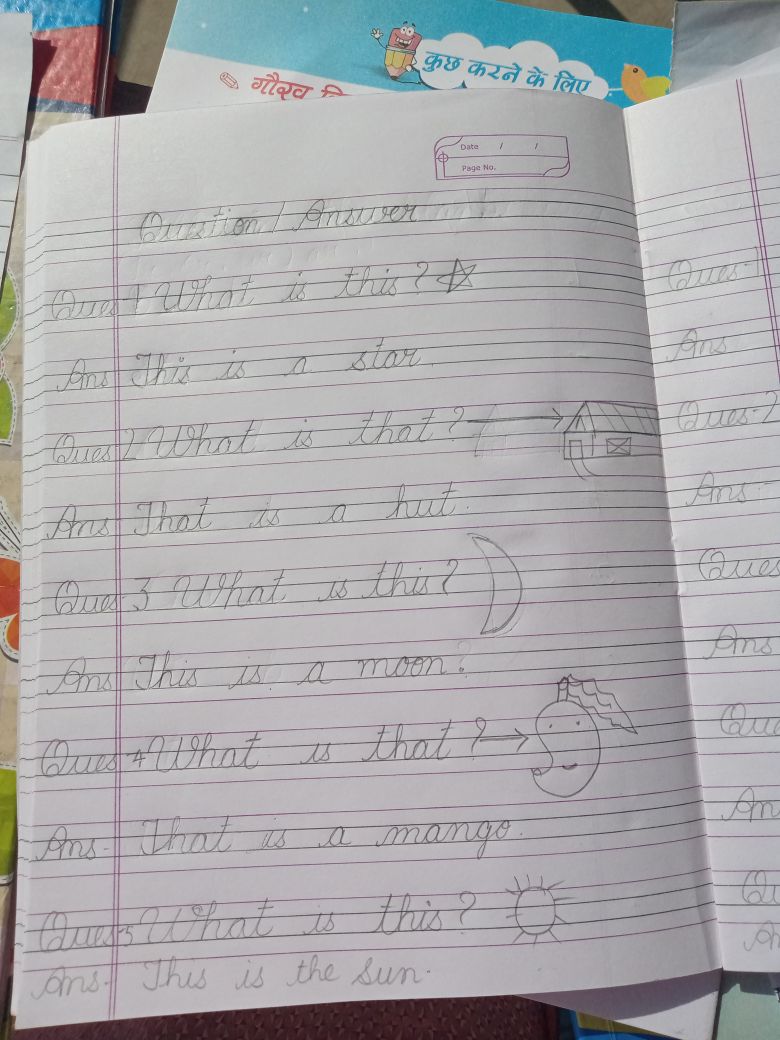 कुछ करने के लिए
गौरव
Date / /
Page No.
Question / Answer
Ques 1 What is this?
Ans This is a star.
Ques 2 What is that?
Ans That is a hut.
Ques 3 What is this?
Ans This is a moon.
Ques 4 What is that?
Ans- That is a mango.
Ques 5 What is this?
Ans- This is the sun.
Ques-1
Ans
Ques-2
Ans-
Ques
Ans